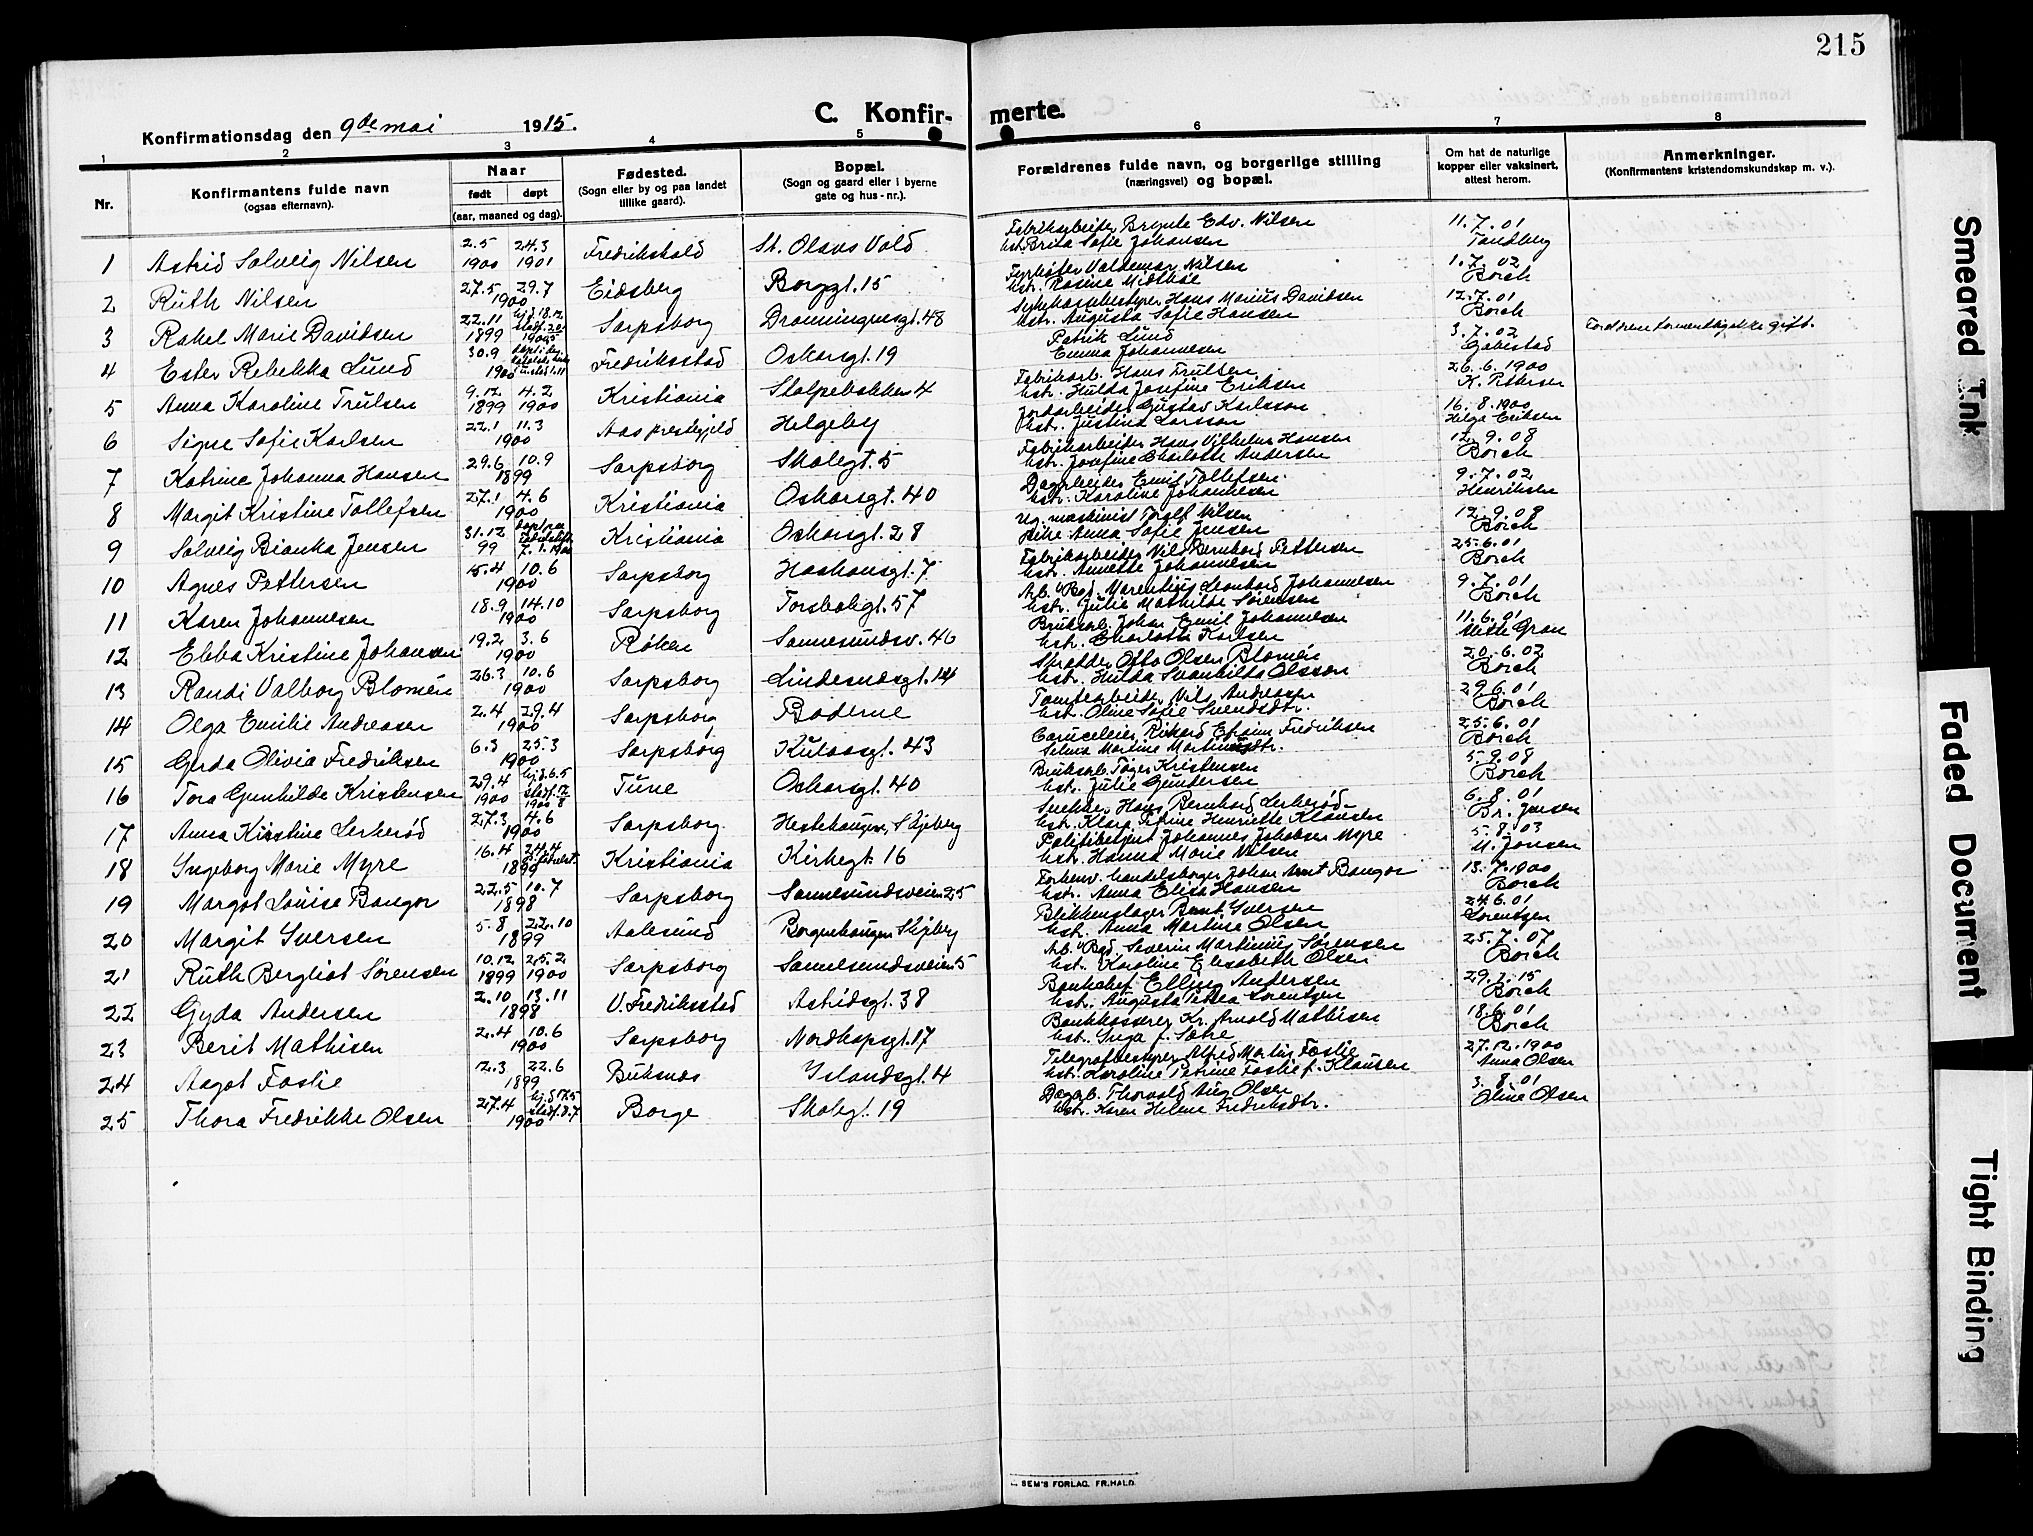 215
C. Konfir-merte.
Konfirmationsdag den 9de mai 1915.
1 2 3 4 5 6 7 8
Nr.
Konfirmantens fulde navn
(ogsaa efternavn).
Naar
født døpt
(aar, maaned og dag).
Fødested.
(Sogn eller by og paa landet
tillike gaard).
Bopæl.
(Sogn og gaard eller i byerne
gate og hus-nr.).
Forældrenes fulde navn, og borgerlige stilling
(næringsvei) og bopæl.
Om hat de naturlige
kopper eller vaksinert,
attest herom.
Anmerkninger.
(Konfirmantens kristendomskundskap m. v.).
1 Astrid Solveig Nilsen 2.5 1900 24.3 1901 Fredrikshald St. Olavs Vold Fabrikarbeider Brynte Edv. Nilsen
hst. Brita Sofie Johansen 11.7.01 Tandberg
2 Ruth Nilsen 27.5 29.7 1900 Eidsberg Borggt. 15 Fyrbøter Valdemar Nilsen
hst. Rosine 1.7.02 Borch
3 Rakel Marie Davidsen 22.11 1899 Sarpsborg Dronningensgt. 48 Sykekassebestyrer Hans Marius Davidsen
hst. Augusta Sofie Hansen 12.7.01 Borch
4 Ester Rebekka Lund 30.9 1900 Fredriksstad Oskarsgt. 19 Patrik Lund
Emma Johannesen 3.7.02 gift.
5 Anna Karoline Trulsen 9.12 1899 4.2 1900 Kristiania Stolpebakken 4 Fabrikarb. Hans Trulsen
hst. Hulda Josefine Eriksen 26.6.1900 K. Pettersen
6 Signe Sofie Karlsen 22.1 11.3 1900 Aas prestegjeld Helgeby Jordarbeider Gustav Karlsson
hst. Justina Larsson 16.8.1900 Helga Eriksen
7 Katrine Johanna Hansen 29.6 10.9 1899 Sarpsborg Skolegt. 5 Fabrikarbeider Hans Vilhelm Hansen
hst. Josefine Charlotte Andersen 12.9.08 Borch
8 Margit Kristine Tollefsen 27.1 4.6 1900 Kristiania Oskarsgt. 40 Dagarbeider Emil Tollefsen
hst. Karoline Johannesen 9.7.02 Henriksen
9 Solveig Bianka Jensen 31.12 99 7.1.1900 Kristiania Oskarsgt. 28 Ug. maskinist Nilsen
Pike Anna Sofie Jensen 12.9.08 Borch
10 Agnes Pettersen 15.4 10.6 1900 Sarpsborg Haakonsgt. 7 Fabrikarbeider Nils Bernhard Pettersen
hst. Annette Johannesen 25.6.01 Borch
11 Karen Johannesen 18.9 14.10 1900 Sarpsborg Torsbakgt. 57 Arb. Leonhard Johannesen
hst. Julie Mathilde Sørensen 9.7.01 Borch
12 Ebba Kristine Johansen 19.2 3.6 1900 Røken Sannesundsv. 46 Bruksarb. Johan Emil Johannesen
hst. Charlotte Karlsen 11.6.01 Gran
13 Randi Valborg Blomén 26.3 10.6 1900 Sarpsborg Lindesnesgt. 14 Skrædder Otto Olsen Blomén
hst. Hulda Svanhilda Olsson 20.6.02 Borch
14 Olga Emilie Andreasen 2.4 29.4 1900 Sarpsborg Baderne Tomtearbeider Nils Andreasen
hst. Oline Sofie Svendsdtr. 29.6.01 Borch
15 Gerda Olivia Fredriksen 6.3 25.3 1900 Sarpsborg Kulaasgt. 43 Rikard Efraim Fredriksen
Selma Martine Martinusdtr. 25.6.01 Borch
16 Tora Gunhilde Kristensen 29.4 1900 Tune Oskarsgt. 40 Bruksarb. Kristensen
hst. Julie Gundersen 5.9.08 Borch
17 Anna Kirstine Lerkerød 27.3 4.6 1900 Sarpsborg Hestehaugen, Skjeberg Snekker Hans Bernhard Lerkerød
hst. Klara Petrine Henriette Klausen 6.8.01 Br. Jensen
18 Ingeborg Marie Myre 16.4 24.4 1899 Kristiania Kirkegt. 16 Politibetjent Johannes Jakobsen Myre
hst. Hanna Marie Nilsen 5.8.03 M. Jensen
19 Margot Louise Bangor 22.5 10.7 1898 Sarpsborg Sannesundsveien 25 Forhenv. handelsborger Johan Arnt Bangor
hst. Anna Elisa Hansen 13.7.1900 Borch
20 Margit Iversen 5.8 22.10 1899 Aalesund Borgenhaugen Skjeberg Blikkenslager Bernt Iversen
hst. Anna Martine Olsen 24.6.01 Lorentzen
21 Ruth Bergliot Sørensen 10.12 1899 25.2 1900 Sarpsborg Sannesundsveien 5 Arb. Severin Martinius Sørensen
hst. Karoline Elisabeth Olsen 25.7.07 Borch
22 Gyda Andersen 2.10 13.11 1898 V. Fredriksstad Astridsgt. 38 Bankchef Elling Andersen
hst. Augusta Petrea Lorentzen 29.7.15 Borch
23 Berit Mathisen 2.4 10.6 1900 Sarpsborg Nordkapsgt. 17 Bankkasserer Kr. Arnold Mathisen
hst. Inga f. Sætre 18.6.01 Borch
24 Aagot Foslie 2.3 22.6 1899 Buksnes Islandsgt. 4 Telegrafbestyrer Alfred Martin Foslie
hst. Karoline Petrine Foslie f. Klausen 27.12.1900 Anna Olsen
25 Thora Fredrikke Olsen 27.4 1900 Borge Skolegt. 19 Dagarb. Thorvald Aug. Olsen
hst. Karen Helene Fredriksdtr. 3.8.01 Oline Olsen
SEM'S FORLAG. FR.HALD.
Smeared Ink
Faded Document
Tight Binding